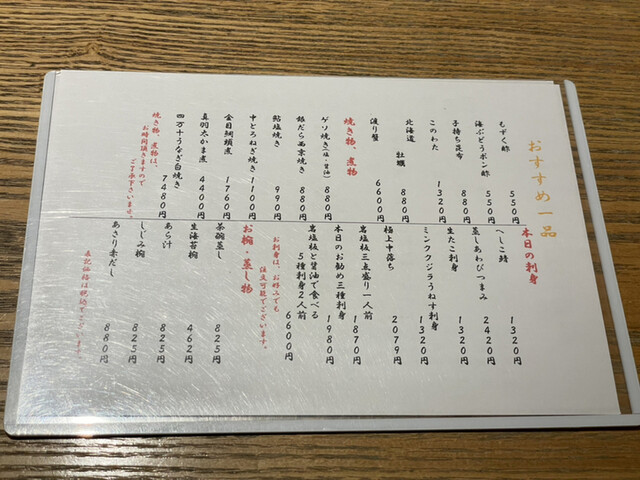 おすすめ一品
もずく酢 550円
海ぶどうポン酢 550円
子持ち昆布 880円
このわた 1320円
北海道 牡蠣 880円
渡り蟹 6600円
焼き物、煮物
ゲソ焼き(塩・醤油) 880円
銀だら西京焼き 880円
鮎塩焼き 990円
中とろねぎ焼き 1100円
金目鯛煮 1760円
真羽太かま煮 4400円
四万十うなぎ白焼き 7480円
焼き物、煮物は、
お時間頂きますので
ご了承下さいませ。
本日の刺身
へしこ鯖 1320円
蒸しあわびつまみ 2420円
生たこ刺身 1320円
ミンククジラうねす刺身 1320円
極上中落ち 2079円
岩塩板三点盛り一人前 1870円
本日のお勧め三種刺身 1980円
岩塩板と醤油で食べる
5種刺身2人前 6600円
お刺身は、お好みでも
注文可能でございます。
お椀・蒸し物
茶碗蒸し 825円
生海苔椀 462円
あら汁 825円
しじみ椀 825円
あさり赤だし 880円
表記価格は税込でございます。